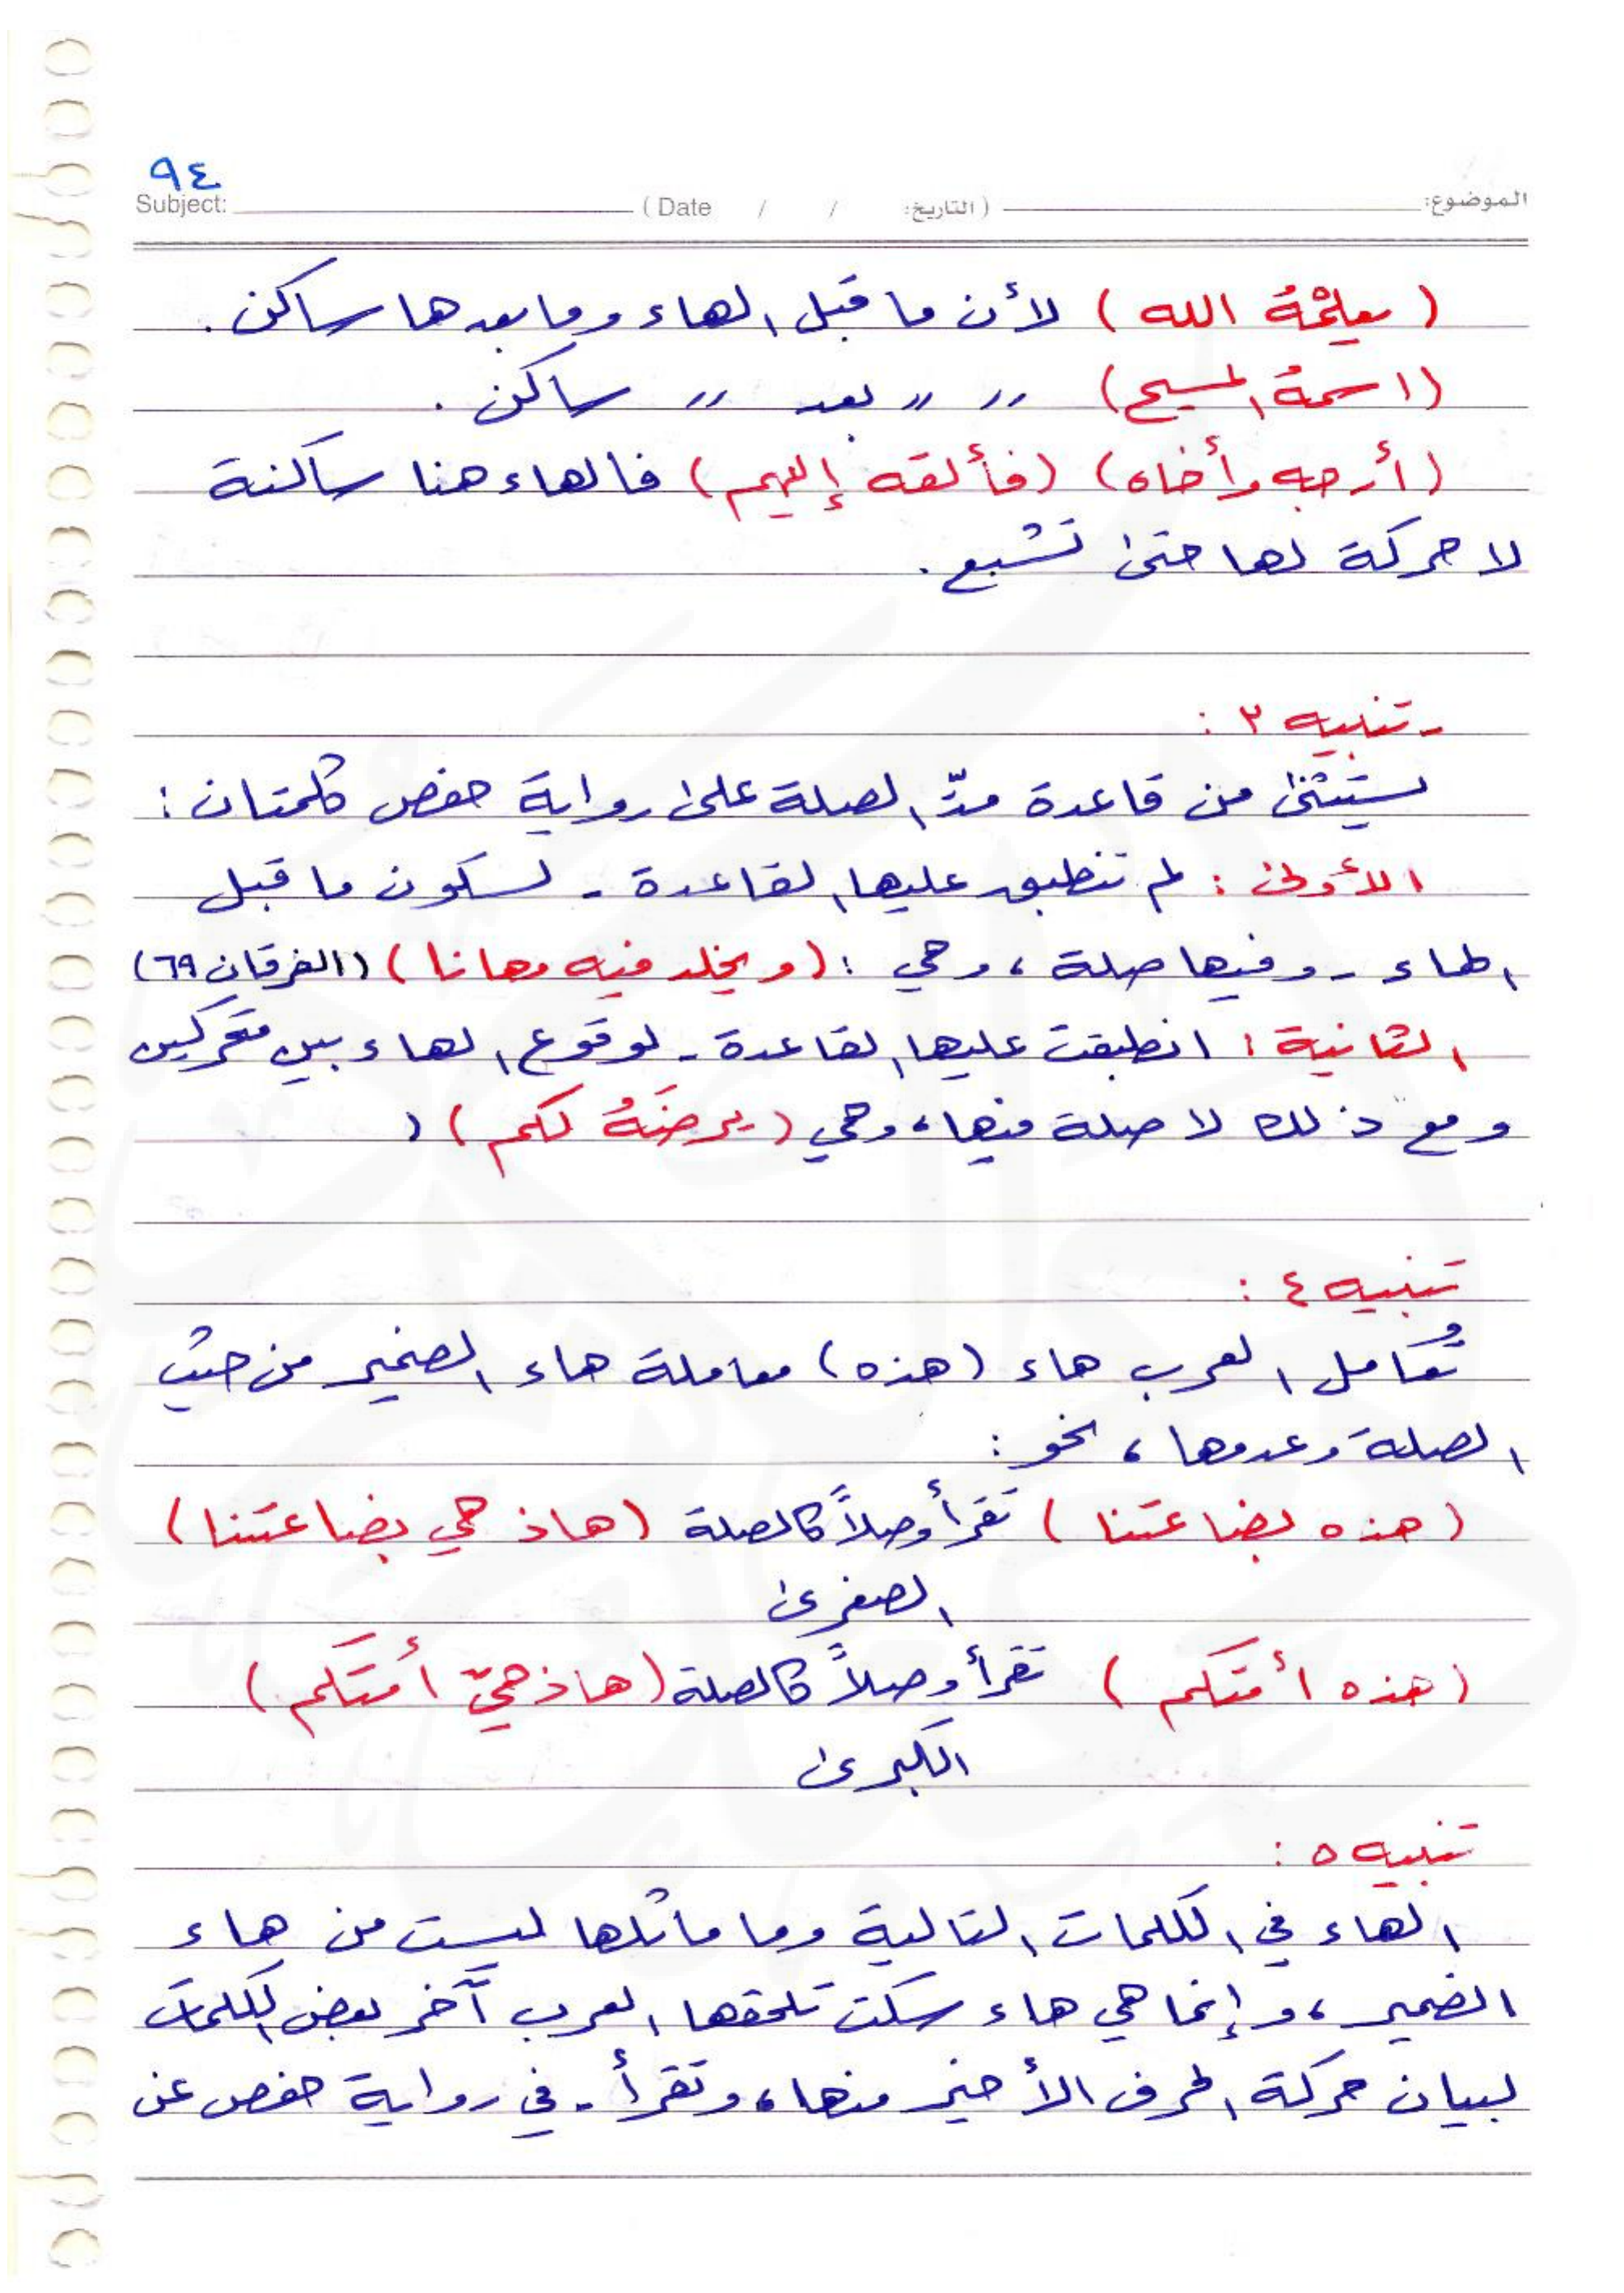 ٩٤
Subject: ( Date / / التاريخ: ) الموضوع:
( يعلمْهُ الله ) لأن ما قبل الهاء وما بعدها ساكن .
(اسمهُ المسيح) 〃 〃 بعد 〃 ساكن .
(أرجه وأخاه) (فألقه إليهم) فالهاء هنا ساكنة
لا حركة لها حتى تشبع .
- تنبيه ٣ :
يستثنى من قاعدة مدّ الصلة على رواية حفص كلمتان :
الأولى : لم تنطبق عليها القاعدة - لسكون ما قبل
الهاء - وفيها صلة ، وهي : (ويخلد فيه مهانا) (الفرقان ٦٩)
الثانية : انطبقت عليها القاعدة - لوقوع الهاء بين متحركين
ومع ذلك لا صلة فيها ، وهي (يرضَهُ لكم) (
تنبيه ٤ :
تُعامل العرب هاء (هذه) معاملة هاء الضمير من حيث
الصلة وعدمها ، نحو :
(هذه بضاعتنا ) تقرأ وصلاً كالصلة (هاذ هي بضاعتنا)
الصغرى
(هذه أمتكم ) تقرأ وصلاً كالصلة (هاذ هيٓ أمتكم)
الكبرى
تنبيه ٥ :
الهاء في الكلمات التالية وما ماثلها ليست من هاء
الضمير ، وإنما هي هاء سكت تلحقها العرب آخر بعض الكلمات
لبيان حركة الحرف الأخير منها ، وتقرأ - في رواية حفص عن